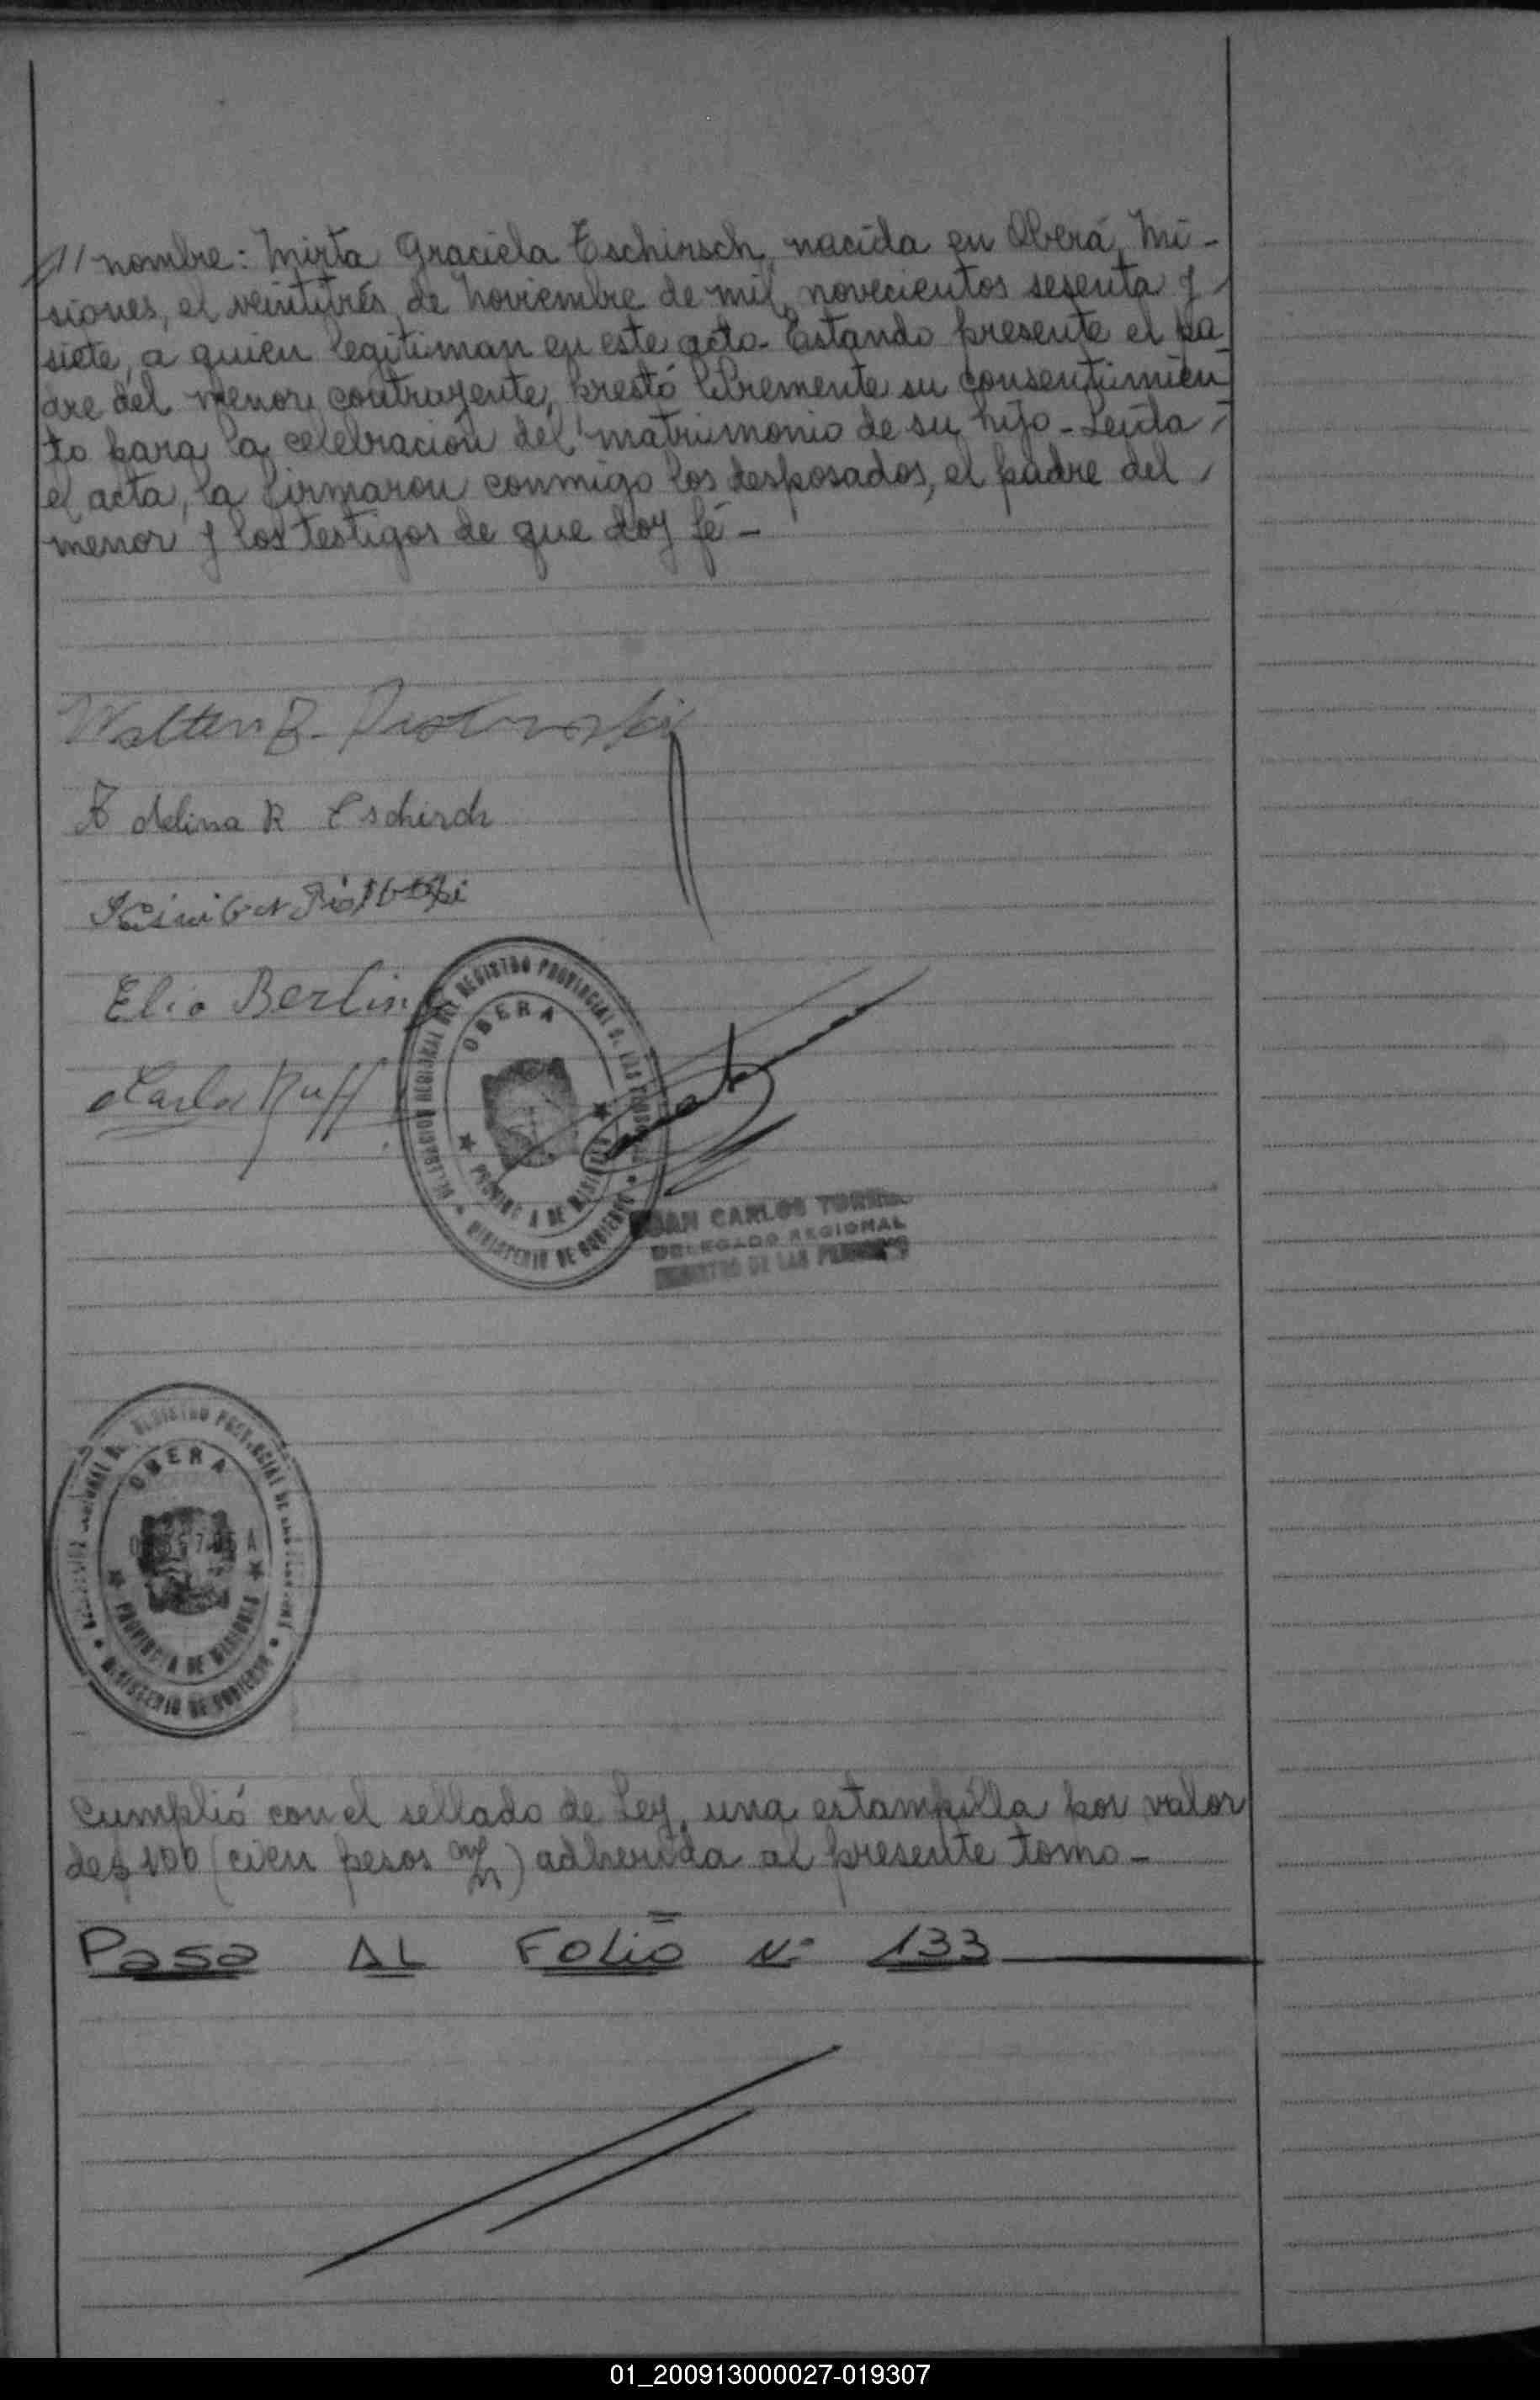 // nombre: Mirta Graciela Eschirsch, nacida en Oberá, Mi-
siones, el veintitrés de Noviembre de mil novecientos sesenta y
siete, a quien legitiman en este acto. Estando presente el pa
dre del menor contrayente, prestó libremente su consentimien
to para la celebración del matrimonio de su hijo - Leída
el acta, la firmaron conmigo los desposados, el padre del
menor y los testigos de que doy fé -
Walter
Adelina R Eschirch
Elio Berlin
Carlos Ruff
DELEGACION REGIONAL DEL REGISTRO PROVINCIAL D. LAS PERSONAS
OBERA
PROVINCIA DE MISIONES
MINISTERIO DE GOBIERNO
JUAN CARLOS
DELEGADO REGIONAL
REGISTRO DE LAS PERSONAS
REGISTRO PROVINCIAL DE LAS
OBERA
PROVINCIA DE MISIONES
MINISTERIO DE GOBIERNO
Cumplió con el sellado de Ley, una estampilla por valor
de $ 100 (cien pesos m/n) adherida al presente tomo -
PASA AL FOLIO Nº 133
01_200913000027-019307